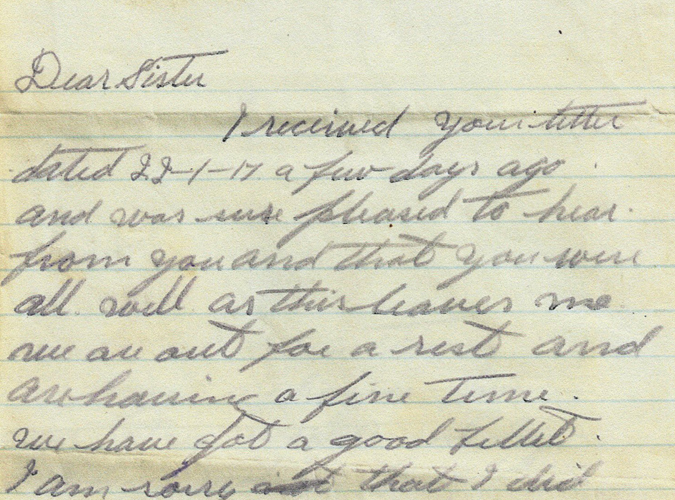 Dear Sister
I received your letter
dated 22-1-17 a few days ago.
and was sure pleased to hear.
from you and that you were
all well as this leaves me
we are out for a rest and
are having a fine time.
we have got a good billet.
I am sorry that I did